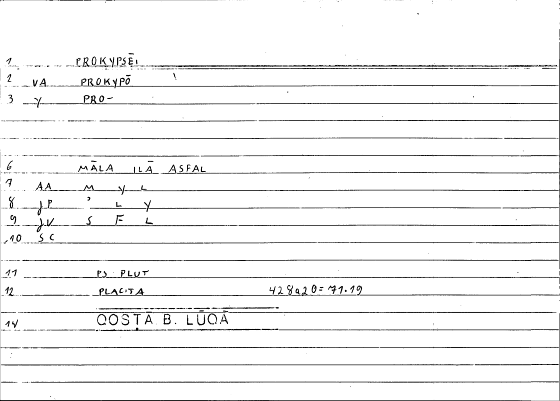 1 PROKYPSĒI
2 VA PROKYPŌ
3 Y PRO-
6 MĀLA ILĀ ASFAL
7 AA M Y L
8 JP ' L Y
9 JV S F L
10 SC
11 PS PLUT
12 PLACITA 428a20=71.19
14 COSTĀ B. LŪCĀ